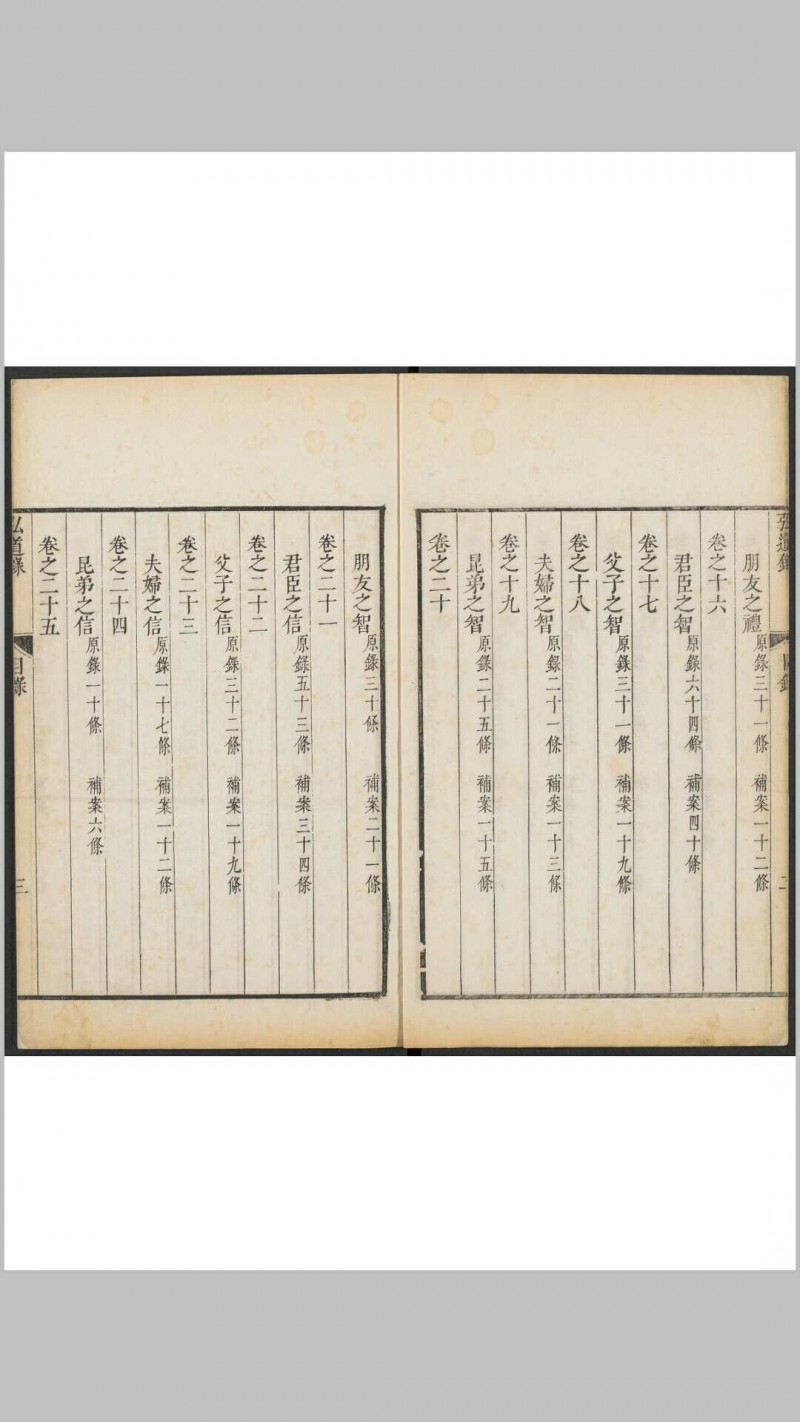 弘道錄 目錄 二
朋友之禮 原錄三十一條 補案一十二條
卷之十六
君臣之智 原錄六十四條 補案四十條
卷之十七
父子之智 原錄三十一條 補案一十九條
卷之十八
夫婦之智 原錄二十一條 補案一十三條
卷之十九
昆弟之智 原錄二十五條 補案一十五條
卷之二十
朋友之智 原錄三十條 補案二十一條
卷之二十一
君臣之信 原錄五十三條 補案三十四條
卷之二十二
父子之信 原錄三十二條 補案一十九條
卷之二十三
夫婦之信 原錄一十七條 補案一十二條
卷之二十四
昆弟之信 原錄一十條 補案六條
卷之二十五
弘道錄 目錄 三